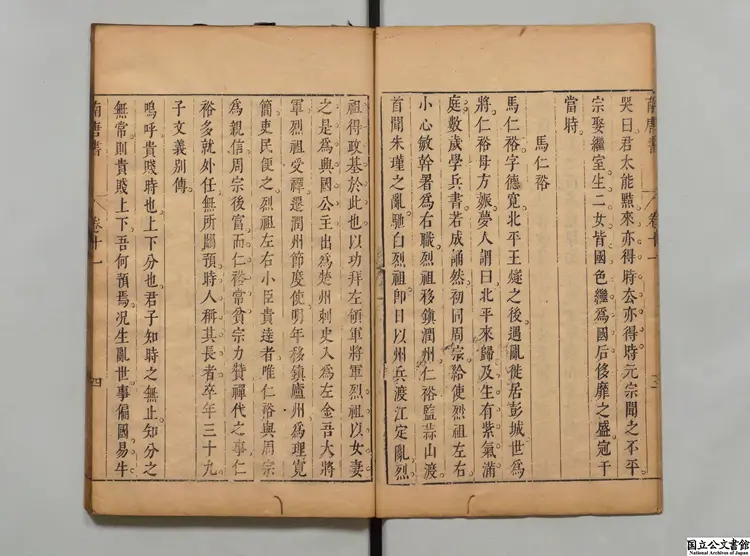 南唐書 卷十一 三
哭曰君太能黠來亦得時去亦得時元宗聞之不平
宗娶繼室生二女皆國色繼爲國后侈靡之盛冠于
當時
馬仁裕
馬仁裕字德寬北平王燧之後遇亂徙居彭城世爲
將仁裕母方娠夢人謂曰北平來歸及生有紫氣滿
庭數歲學兵書若成誦然初同周宗給使烈祖左右
小心敏幹署爲右職烈祖移鎮潤州仁裕監蒜山渡
首聞朱瑾之亂馳白烈祖卽日以州兵渡江定亂烈
祖得政基於此也以功拜左領軍將軍烈祖以女妻
之是爲興國公主出爲楚州刺史入爲左金吾大將
軍烈祖受禪遷潤州節度使明年移鎮廬州爲理寬
簡吏民便之烈祖左右小臣貴達者唯仁裕與周宗
爲親信周宗後富而仁裕常貧宗力贊禪代之事仁
裕多就外任無所關預時人稱其長者卒年三十九
子文義別傳
嗚呼貴賤時也上下分也君子知時之無止知分之
無常則貴賤上下吾何預焉況生亂世事偏國易牛
南唐書 卷十一 四
国立公文書館
National Archives of Japan